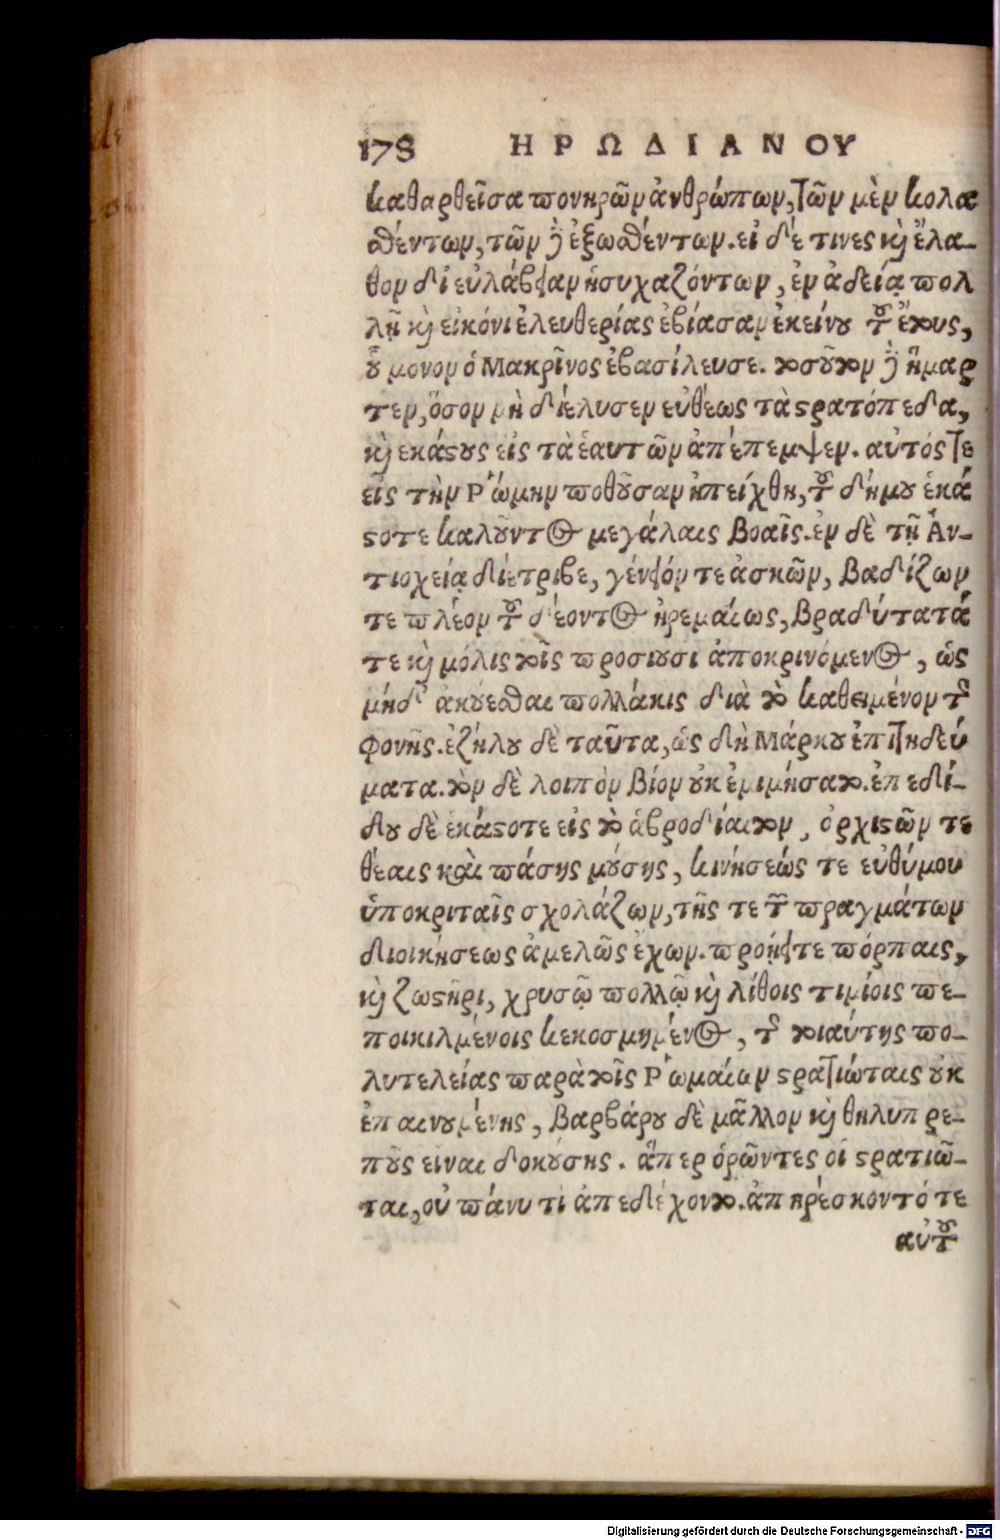 178 ΗΡΩΔΙΑΝΟΥ
καθαρθεῖσα πονηρῶν ἀνθρώπων, τῶν μὲν κολα
σθέντων, τῶν δὲ ἐξωσθέντων. εἰ δέ τινες καὶ ἔλα-
θον δι εὐλάβειαν ἡσυχαζόντων, ἐν ἀδείᾳ πολ
λῇ καὶ εἰκόνι ἐλευθερίας ἐβίασαν ἐκείνου τοῦ ἔτους,
οὗ μονον ὁ Μακρῖνος ἐβασίλευσε. τοσοῦτον δὲ ἥμαρ
τεν, ὅσον μὴ διέλυσεν εὐθέως τὰ στρατόπεδα,
καὶ εκάστους εἰς τὰ ἑαυτῶν ἀπέπεμψεν. αὐτός τε
εἰς τὴν Ῥώμην ποθοῦσαν ἠπείχθη, τοῦ δήμου ἑκά
στοτε καλοῦντος μεγάλαις βοαῖς. ἐν δὲ τῇ Ἀν-
τιοχείᾳ διέτριβε, γένειόν τε ἀσκῶν, βαδίζων
τε πλέον τοῦ δέοντος ἠρεμαίως, βραδύτατά
τε καὶ μόλις τοῖς προσιουσι ἀποκρινόμενος, ὡς
μήδ' ἀκούεσθαι πολλάκις διὰ τὸ καθειμένον τῆς
φονῆς. ἐζήλου δὲ ταῦτα, ὡς δὴ Μάρκου ἐπιτηδεύ
ματα. τὸν δὲ λοιπὸν βίον οὐκ ἐμιμήσατο. ἐπεδί-
δου δὲ ἑκάστοτε εἰς τὸ ἁβροδίαιτον, ὀρχιστῶν τε
θέαις καὶ πάσης μούσης, κινήσεώς τε εὐθύμου
ὑποκριταῖς σχολάζων, τῆς τε τῶν πραγμάτων
διοικήσεως ἀμελῶς ἔχων. προῄει τε πόρπαις,
καὶ ζωστῆρι, χρυσῷ πολλῷ καὶ λίθοις τιμίοις πε-
ποικιλμένοις κεκοσμημένος, τῆς τοιαύτης πο-
λυτελείας παρὰ τοῖς Ῥωμαίων στρατιώταις οὐκ
ἐπαινουμένης, βαρβάρου δὲ μᾶλλον καὶ θηλυπρε-
ποῦς εἶναι δοκούσης. ἅπερ ὁρῶντες οἱ στρατιῶ-
ται, οὐ πάνυ τι ἀπεδέχοντο. ἀπηρέσκοντό τε
αὐτοῦ
Digitalisierung gefördert durch die Deutsche Forschungsgemeinschaft - DFG